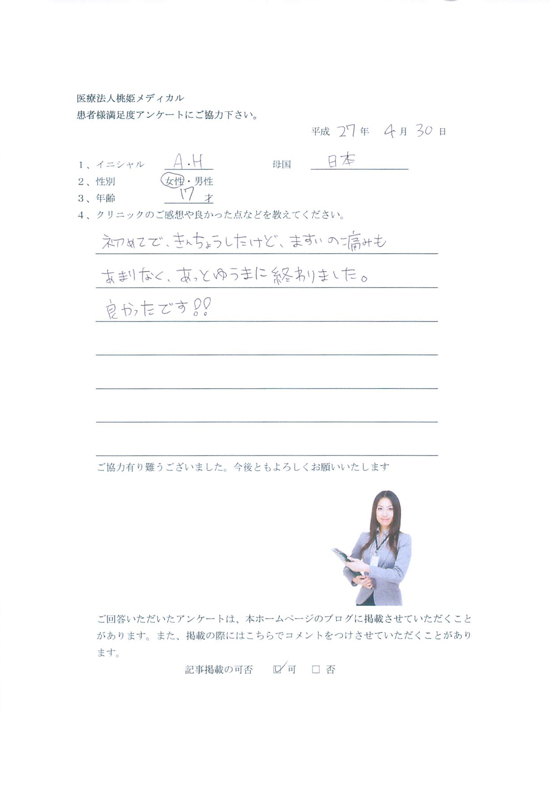 医療法人桃姫メディカル
患者様満足度アンケートにご協力下さい。
平成 27 年 4 月 30 日
1、イニシャル A.H 母国 日本
2、性別 女性・男性
3、年齢 17 才
4、クリニックのご感想や良かった点などを教えてください。
初めてで、きんちょうしたけど、ますいの痛みも
あまりなく、あっとゆうまに終わりました。
良かったです!!
ご協力有り難うございました。今後ともよろしくお願いいたします
ご回答いただいたアンケートは、本ホームページのブログに掲載させていただくこと
があります。また、掲載の際にはこちらでコメントをつけさせていただくことがあり
ます。
記事掲載の可否 ☑ 可 □ 否